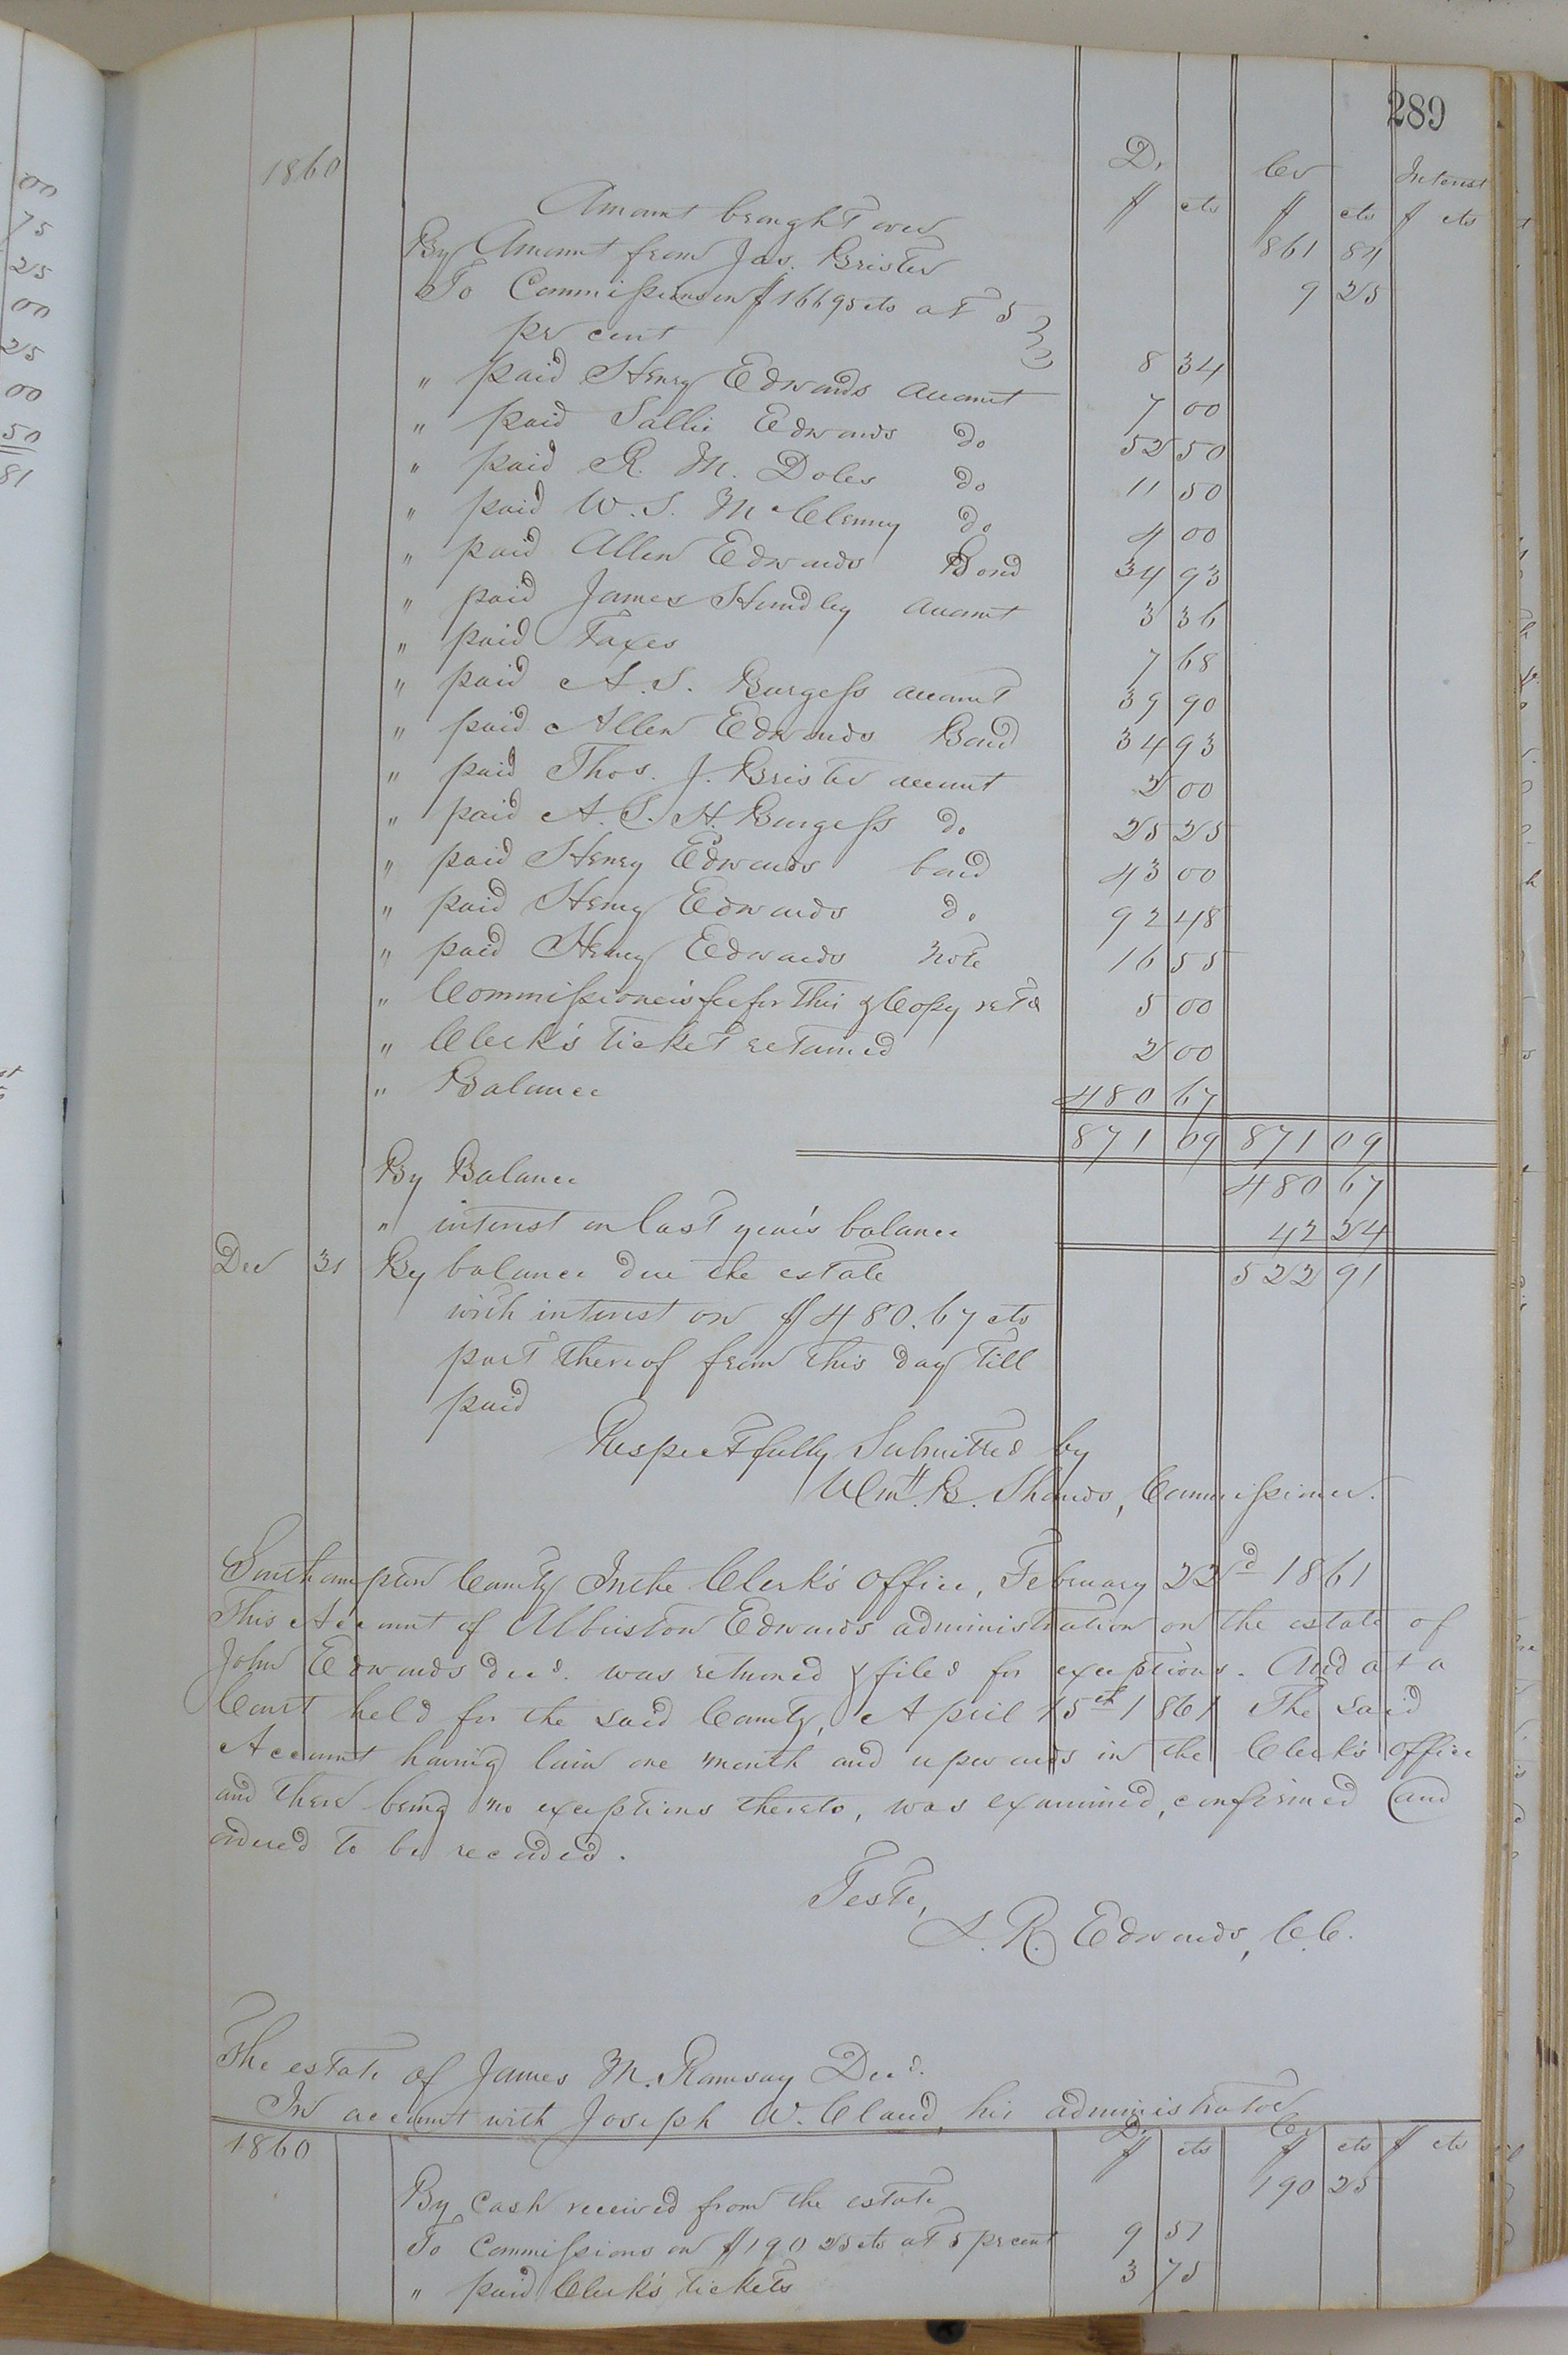 289
1860 Dr Cr Interest
Amount brought over $ cts $ cts $ cts
By Amount from Jas. Brister 861 84
To Commissions on $166 95 cts at 5 9 25
pr cent 8 34
" paid Henry Edwards account 7 00
" paid Sallie Edwards do 52 50
" paid R. M. Doles do 11 50
" paid W. S. McClenny do 4 00
" paid Allen Edwards Bond 34 93
" paid James Hundley account 3 36
" paid Taxes 7 68
" paid A. S. Burgess account 39 90
" paid Allen Edwards Bond 34 93
" paid Thos. J. Brister account 2 00
" paid A. S. H. Burgess do 25 25
" paid Henry Edwards bond 43 00
" paid Henry Edwards do 92 48
" paid Henry Edwards note 16 55
" Commissioner's fee for this & Copy retd 5 00
" Clerk's ticket retained 2 00
" Balance 480 67
871 09 871 09
By Balance 480 67
" interest on last year's balance 42 24
Dec 31 By balance due the estate 522 91
with interest on $480.67 cts
part thereof from this day till
paid
Respectfully Submitted by
Wm. B. Shands, Commissioner.
Southampton County In the Clerk's Office, February 22d 1861
This Account of Albriston Edwards administration on the estate of
John Edwards decd. was returned & filed for exceptions. And at a
Court held for the said County, April 15th 1861 The said
Account having lain one month and upwards in the Clerk's office
and there being no exceptions thereto, was examined, confirmed and
ordered to be recorded.
Teste,
L. R. Edwards, C.C.
The estate of James M. Ramsay Decd.
In account with Joseph W. Claud, his administrator
1860 Dr $ cts Cr $ cts $ cts
By Cash received from the estate 190 25
To Commissions on $190 25 cts at 5 pr cent 9 51
" paid Clerk's tickets 3 75
00
75
25
00
25
00
50
81